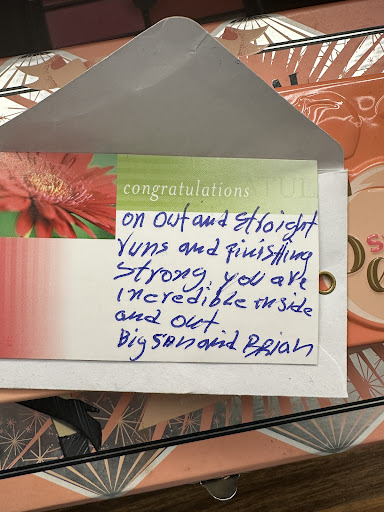 congratulations
on out and straight
runs and finishing
strong, you are
incredible inside
and out
Big Sean and Brian